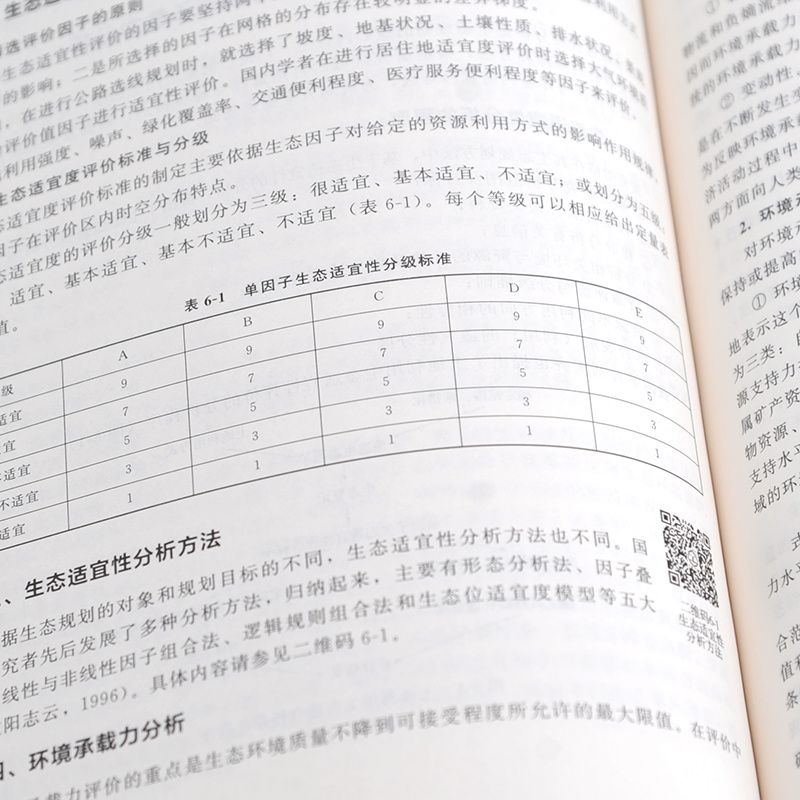 生态适
选评价因子的原则
生态适宜性评价的因子要坚持两
的影响；二是所选择的因子在网格的分布存在较明显的差异梯度。
，在进行公路选线规划时，就选择了坡度、地基状况、土壤性质、排水状况、
评价值因子进行适宜性评价。国内学者在进行居住地适宜度评价时选择大气环境
利用强度、噪声、绿化覆盖率、交通便利程度、医疗服务便利程度等因子来评价。
生态适宜度评价标准与分级
态适宜度评价标准的制定主要依据生态因子对给定的资源利用方式的影响作用规律
因子在评价区内时空分布特点。
态适宜度的评价分级一般划分为三级：很适宜、基本适宜、不适宜；或划分为五级：
、适宜、基本适宜、基本不适宜、不适宜（表 6-1）。每个等级可以相应给出定量表
值。
表 6-1 单因子生态适宜性分级标准
级 A B C D E
适宜 9 9 9 9 9
宜 7 7 7 7 7
适宜 5 5 5 5 5
不适宜 3 3 3 3 3
适宜 1 1 1 1 1
、生态适宜性分析方法
据生态规划的对象和规划目标的不同，生态适宜性分析方法也不同。国
究者先后发展了多种分析方法，归纳起来，主要有形态分析法、因子叠
线性与非线性因子组合法、逻辑规则组合法和生态位适宜度模型等五大
阳志云，1996）。具体内容请参见二维码 6-1。
二维码6-1
生态适宜性
分析方法
四、环境承载力分析
载力评价的重点是生态环境质量不降到可接受程度所允许的最大限值。在评价中
物流和负熵流
因而环境承载力
性的环境承载力
② 变动性。
是在不断发生变
为反映环境承
济活动过程中
两方面向人类
2. 环境承
对环境承
保持或提高
① 环境
地表示这个
为三类：
源支持力
属矿产资
物资源、
支持水平
域的环
式
力水平
合范
值和
条